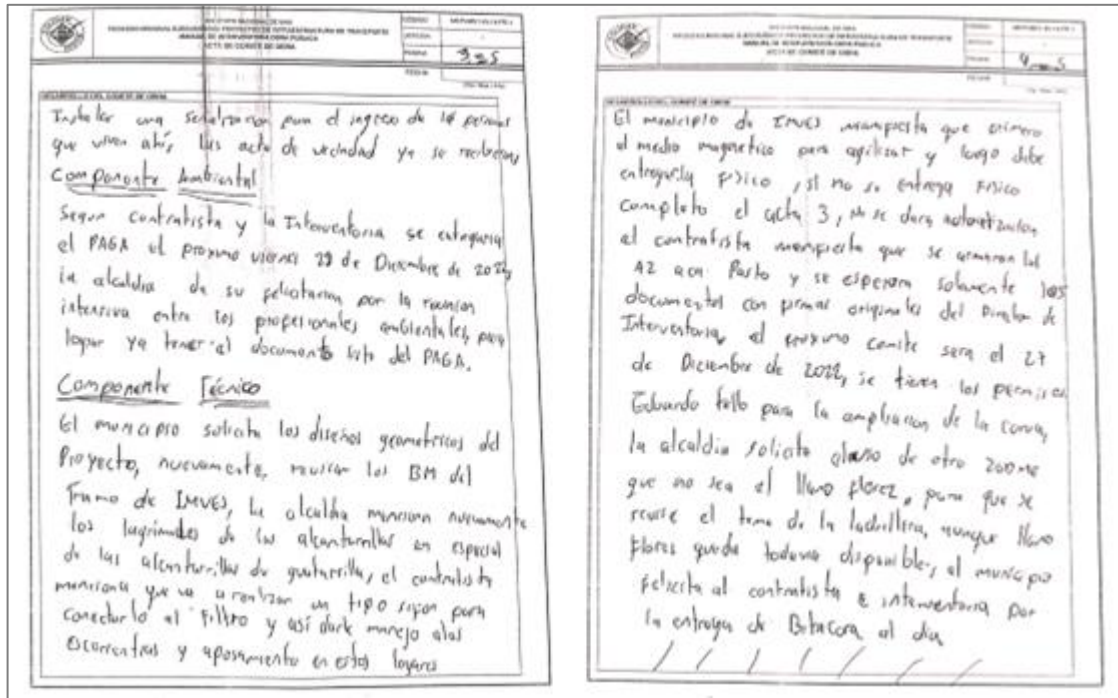 INSTITUTO NACIONAL DE VIAS
MANUAL DE INTERVENTORIA OBRA PUBLICA
ACTA DE COMITÉ DE OBRA
3 de 5
DESARROLLO DEL COMITÉ DE OBRA
Instalar una señalizacion para el ingreso de personas
que viven ahí, las acta de vecindad ya se recibieron,
Componente Ambiental
Segun contratista y la Interventoria se entregaria
el PAGA el proximo viernes de Diciembre de 2022,
la alcaldia da su felicitacion por la reunion
intensiva entre los profesionales ambientales, para
lograr ya tener el documento listo del PAGA.
Componente Técnico
El municipio solicita los diseños geometricos del
Proyecto, nuevamente, revisar los BM del
Tramo de IMVES, la alcaldia menciona nuevamente
los lagrimales de las alcantarillas en especial
de las alcantarillas de guitarrilla, el contratista
menciona que va a realizar un tipo sifon para
conectarlo al Filtro y así darle manejo a las
escorrentias y aposamiento en estos lugares
INSTITUTO NACIONAL DE VIAS
MANUAL DE INTERVENTORIA OBRA PUBLICA
ACTA DE COMITÉ DE OBRA
4 de 5
DESARROLLO DEL COMITÉ DE OBRA
El municipio de IMVES manifiesta que primero
el medio magnetico para agilizar y luego debe
entregarla fisico, si no se entrega Fisico
completo el acta 3, no se dara autorizacion
el contratista manifiesta que se armaron las
AZ aca Pasto y se esperan solamente los
documentos con firmas originales del Director de
Interventoria, el proximo comite sera el 27
de Diciembre de 2022, se tienen los permisos
Eduardo tello para la ampliacion de la curva,
la alcaldia solicita de otro
que no sea el llano florez, para que se
revise el tema de la ladrillera, aunque llano
flores queda todavia disponible, el municipio
felicita al contratista e interventoria por
la entrega de Bitacora al dia